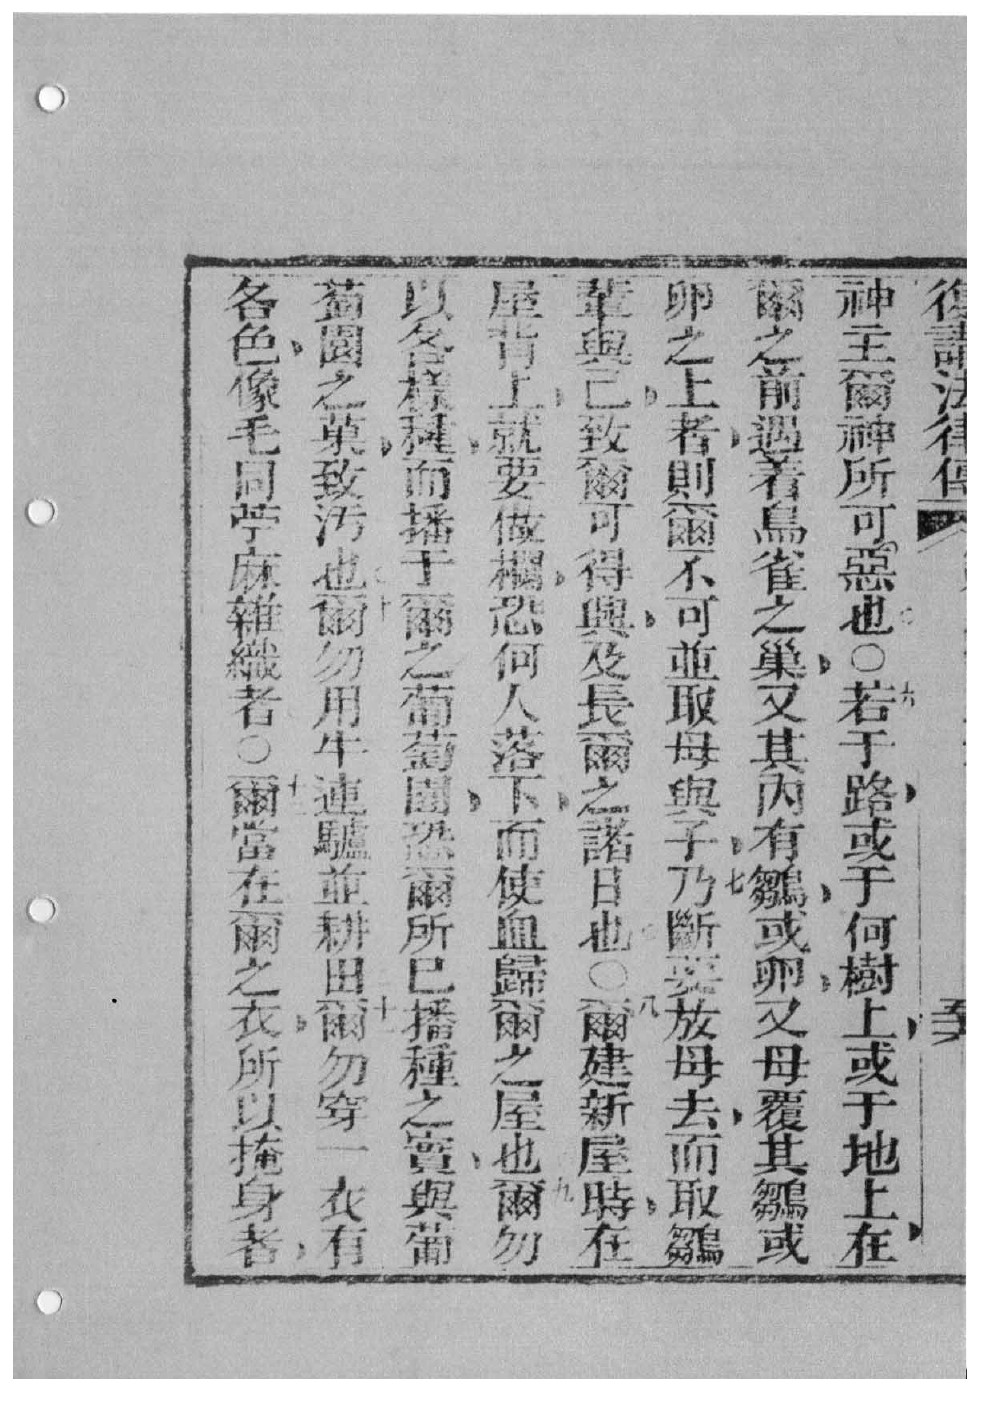 復講法律傳
神主爾神所可惡也○六若于路或于何樹上或于地上在
爾之前遇着鳥雀之巢又其內有鶵或卵又母覆其鶵或
卵之上者則爾不可並取母與子七乃斷要放母去而取鶵
輩與己致爾可得興及長爾之諸日也○八爾建新屋時在
屋背上就要做欄恐何人落下而使血歸爾之屋也九爾勿
以各樣種而播于爾之葡萄園恐爾所已播種之實與葡
萄園之菓致污也十爾勿用牛連驢並耕田十一爾勿穿一衣有
各色像毛同苧麻雜織者○十二爾當在爾之衣所以掩身者